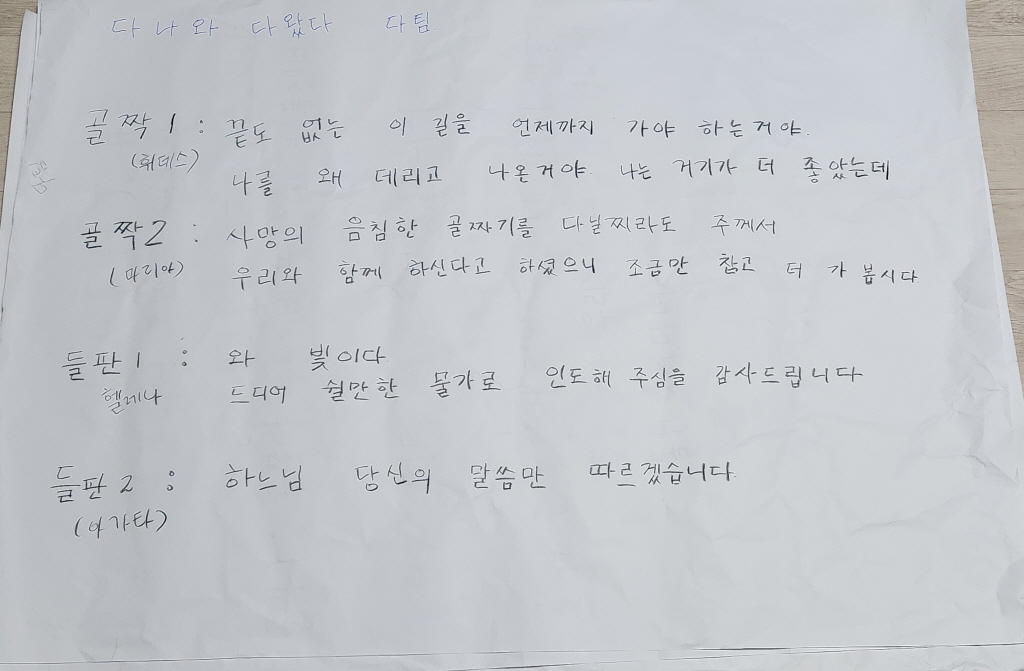 다 나 와 다왔다 다팀
골짝 1 : 끝도 없는 이 길을 언제까지 가야 하는거야.
(휘데스) 나를 왜 데리고 나온거야. 나는 거기가 더 좋았는데
골짝 2 : 사망의 음침한 골짜기를 다닐찌라도 주께서
(마리아) 우리와 함께 하신다고 하셨으니 조금만 참고 더 가 봅시다
들판 1 : 와 빛이다
헬레나 드디어 쉴만한 물가로 인도해 주심을 감사드립니다
들판 2 : 하느님 당신의 말씀만 따르겠습니다.
(아가타)